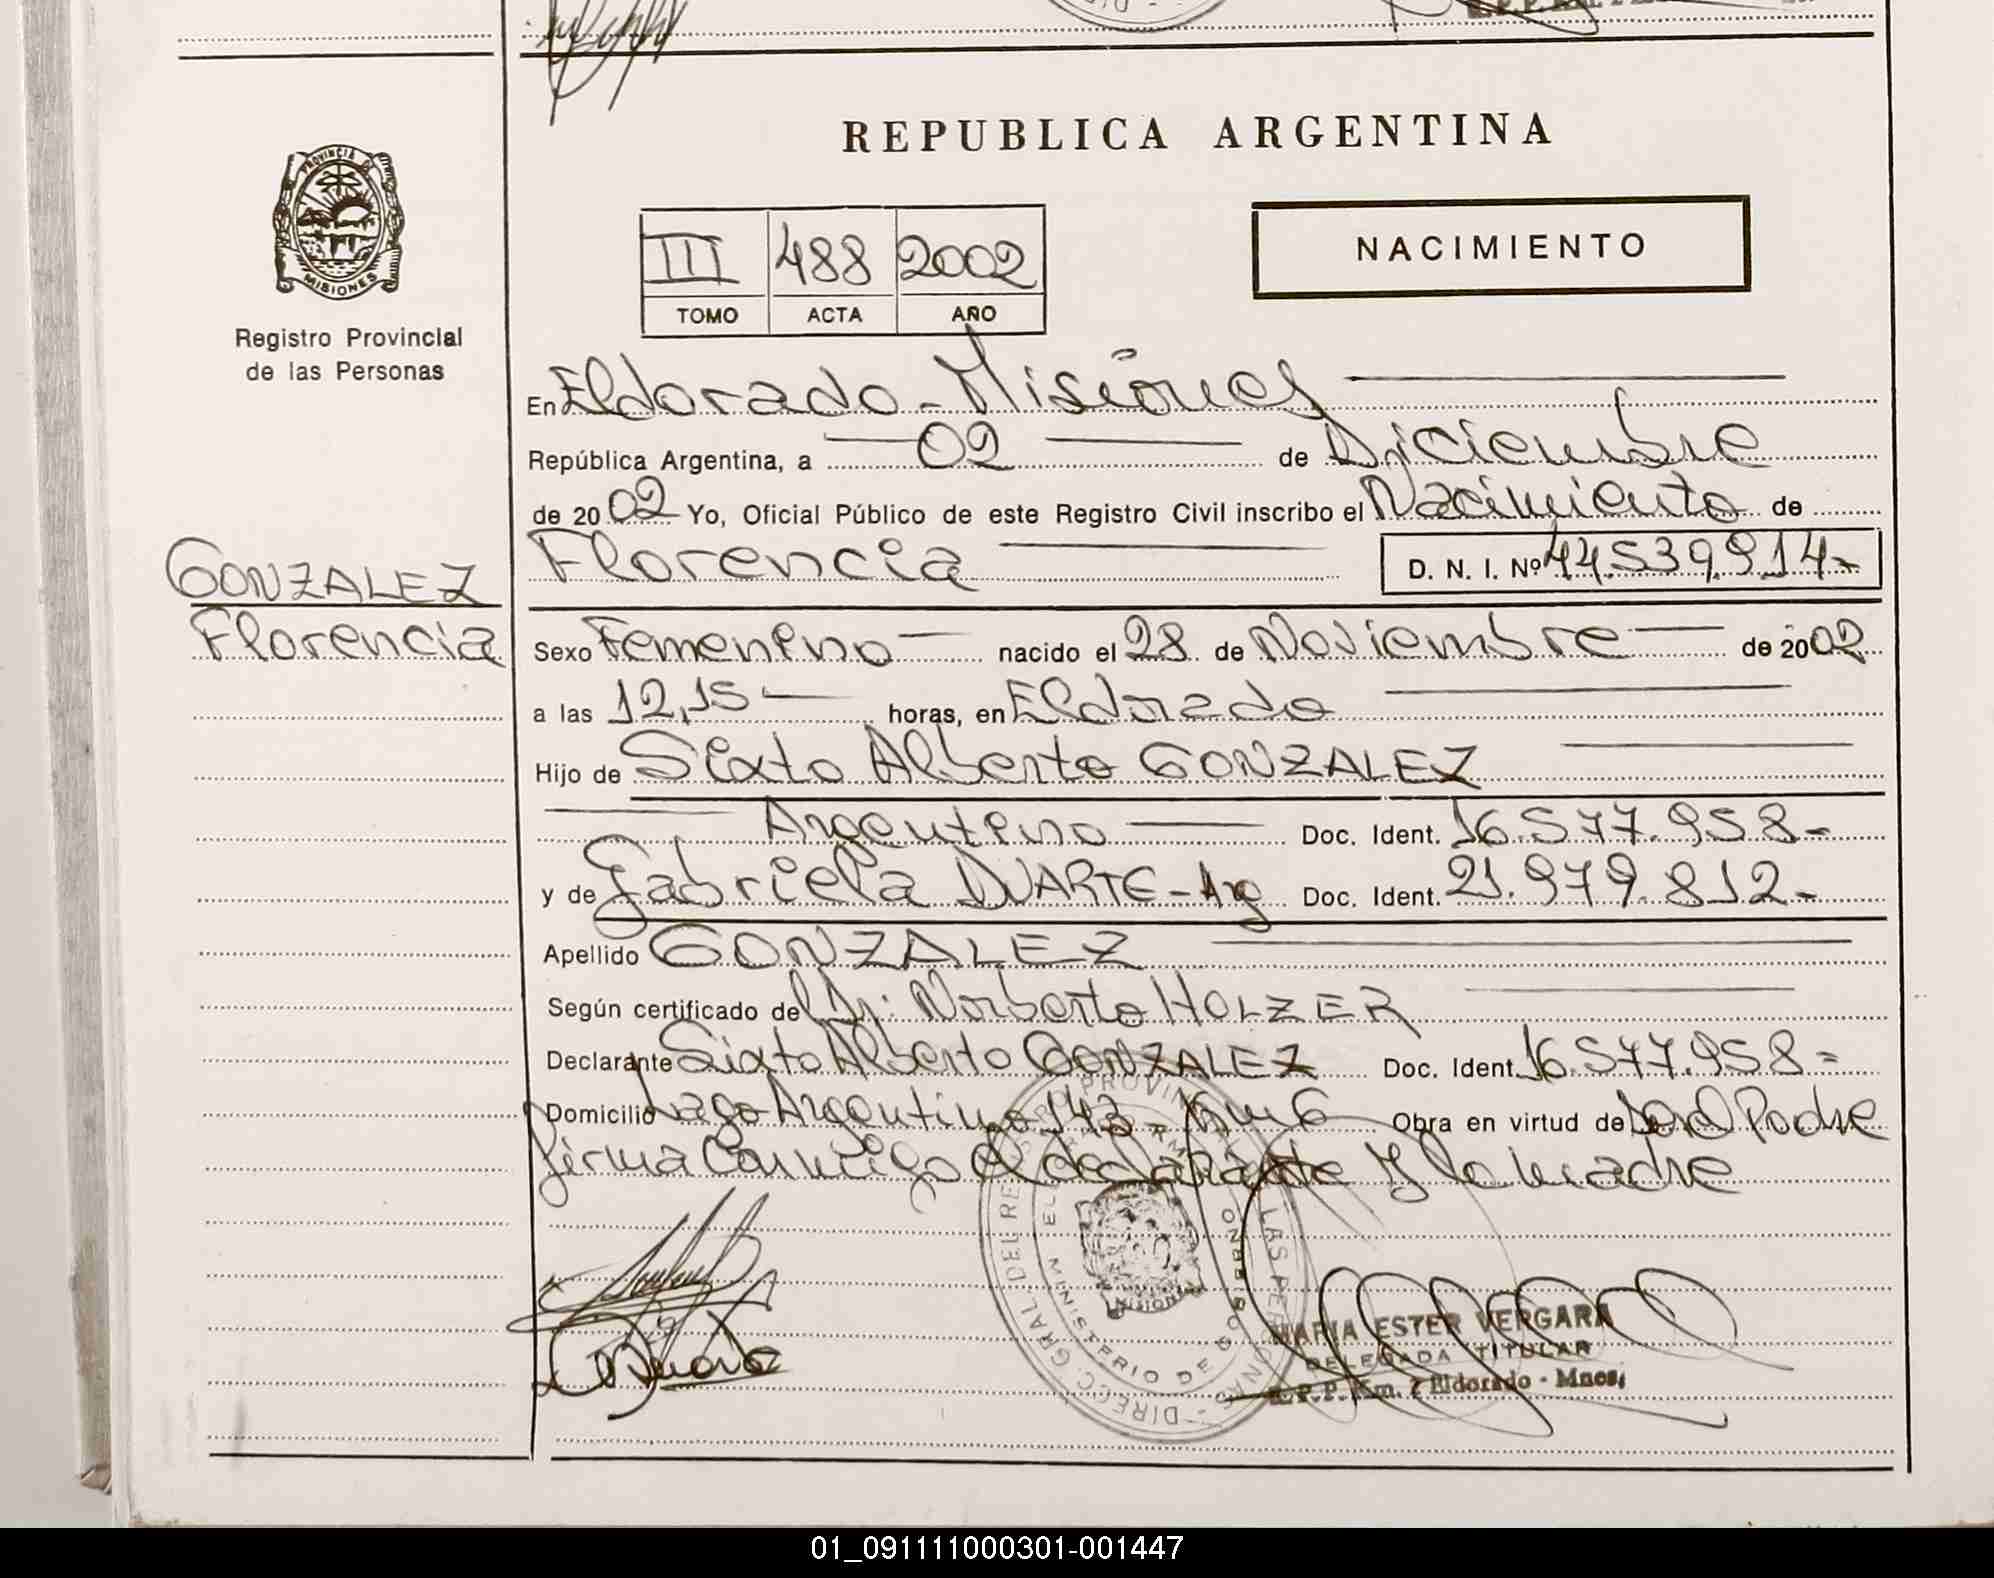 REPUBLICA ARGENTINA
PROVINCIA DE
MISIONES
Registro Provincial
de las Personas
III 488 2002
TOMO ACTA AÑO
NACIMIENTO
En Eldorado - Misiones
República Argentina, a 02 de Diciembre
de 2002 Yo, Oficial Público de este Registro Civil inscribo el Nacimiento de
Florencia D. N. I. Nº 44.539.914-
GONZALEZ
Florencia
Sexo Femenino nacido el 28 de Noviembre de 2002
a las 12,15 horas, en Eldorado
Hijo de Sixto Alberto GONZALEZ
Argentino Doc. Ident. 16.577.958-
y de Gabriela DUARTE - Arg Doc. Ident. 21.979.812-
Apellido GONZALEZ
Según certificado del Dr. Norberto HOLZER
Declarante Sixto Alberto GONZALEZ Doc. Ident. 16.577.958=
Domicilio Lago Argentino 143 - Km 6 Obra en virtud de Padre
firma Conmigo el declarante y la madre
DIRECC. GRAL. DEL REG. PROVINCIAL DE LAS PERSONAS
MINISTERIO DE GOBIERNO
MISIONES
MARIA ESTER VERGARA
DELEGADA TITULAR
R.P.P. Km. 7 Eldorado - Mnes.
01_091111000301-001447